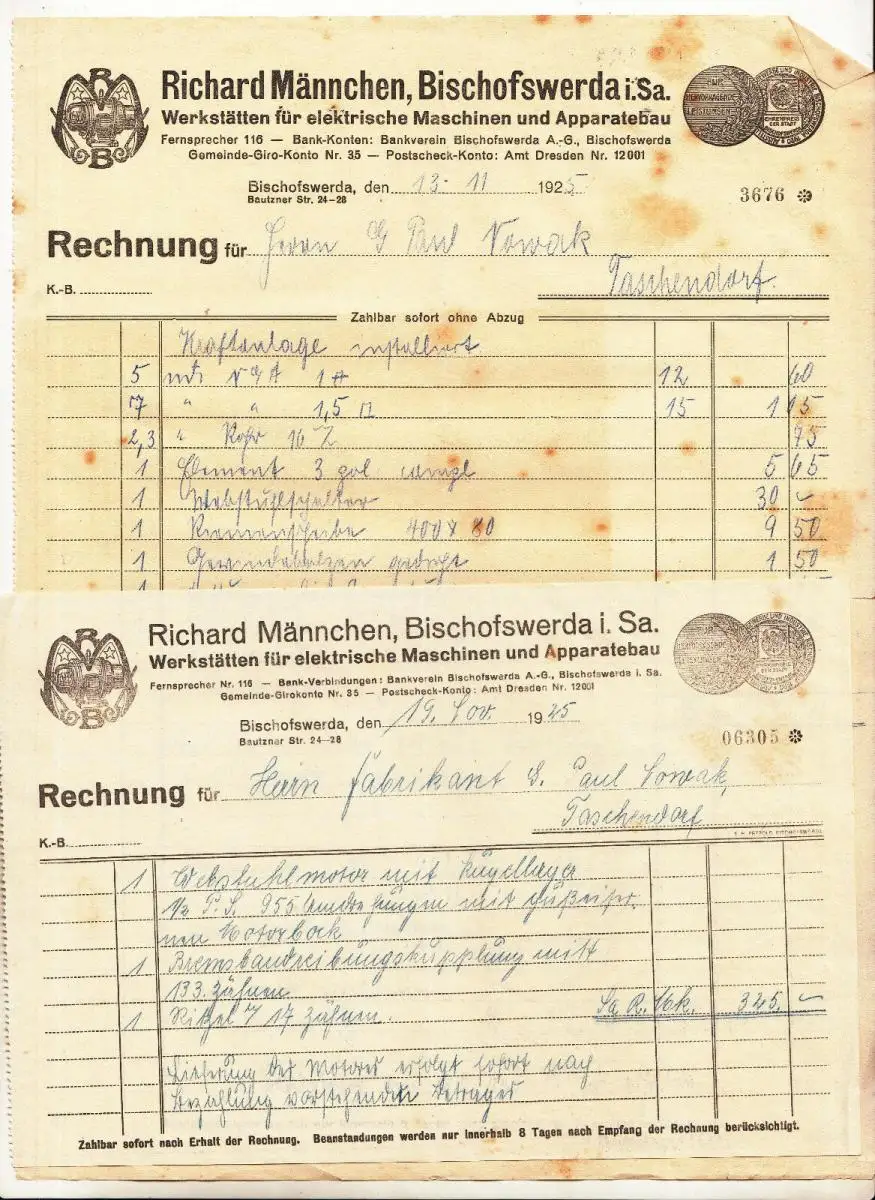 Richard Männchen, Bischofswerda i. Sa.
Werkstätten für elektrische Maschinen und Apparatebau
Fernsprecher 116 — Bank-Konten: Bankverein Bischofswerda A.-G., Bischofswerda
Gemeinde-Giro-Konto Nr. 35 — Postscheck-Konto: Amt Dresden Nr. 12001
Bischofswerda, den 13. 11 1925
Bautzner Str. 24-28
3676
Rechnung für Herrn G Paul Nowak
Taschendorf.
K.-B.
Zahlbar sofort ohne Abzug
Kraftanlage installiert
5 mtr 12 60
7 " " 1,5 15 1 15
2,3 " Rohr 16 75
1 Element 3 pol 5 65
1 Webstuhlschalter 30 –
1 Riemenscheibe 400 x 80 9 50
1 Gewindebolzen gedreht 1 50
Richard Männchen, Bischofswerda i. Sa.
Werkstätten für elektrische Maschinen und Apparatebau
Fernsprecher Nr. 116 — Bank-Verbindungen: Bankverein Bischofswerda A.-G., Bischofswerda i. Sa.
Gemeinde-Girokonto Nr. 35 — Postscheck-Konto: Amt Dresden Nr. 12001
Bischofswerda, den 19. Nov. 1925
Bautzner Str. 24—28
06305
Rechnung für Herrn Fabrikant G. Paul Nowak,
Taschendorf
K.-B.
1 Webstuhlmotor mit Kugellager
1/2 P.S. 955 Umdrehungen mit gußeiser-
nen Motorbock
1 Bremsbandreibungskupplung mitt
133 Zähnen
1 Ritzel 17 Zähnen. Sa. R. Mk. 345. –
Lieferung des Motores erfolgt sofort nach
Bezahlung vorstehenden Betrages
Zahlbar sofort nach Erhalt der Rechnung. Beanstandungen werden nur innerhalb 8 Tagen nach Empfang der Rechnung berücksichtigt.